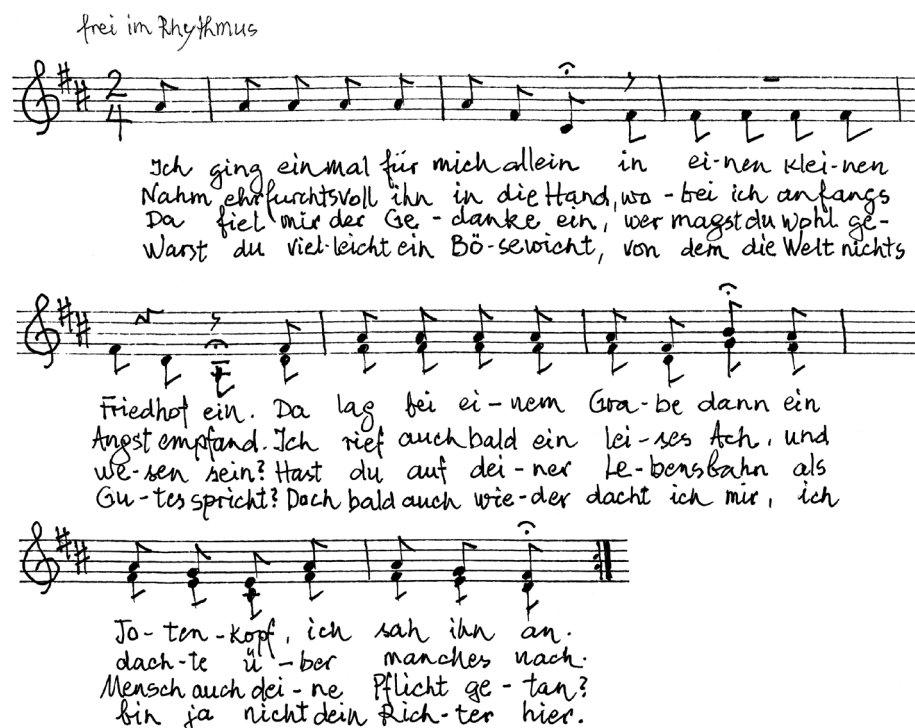 frei im Rhythmus
2
4
Ich ging einmal für mich allein in ei-nen klei-nen
Nahm ehrfurchtsvoll ihn in die Hand, wo-bei ich anfangs
Da fiel mir der Ge-danke ein, wer magst du wohl ge-
Warst du viel-leicht ein Bö-sewicht, von dem die Welt nichts
Friedhof ein. Da lag bei ei-nem Gra-be dann ein
Angst empfand. Ich rief auch bald ein lei-ses Ach, und
we-sen sein? Hast du auf dei-ner Le-bensbahn als
Gu-tes spricht? Doch bald auch wie-der dacht ich mir, ich
To-ten-kopf, ich sah ihn an.
dach-te ü-ber manches nach.
Mensch auch dei-ne Pflicht ge-tan?
bin ja nicht dein Rich-ter hier.